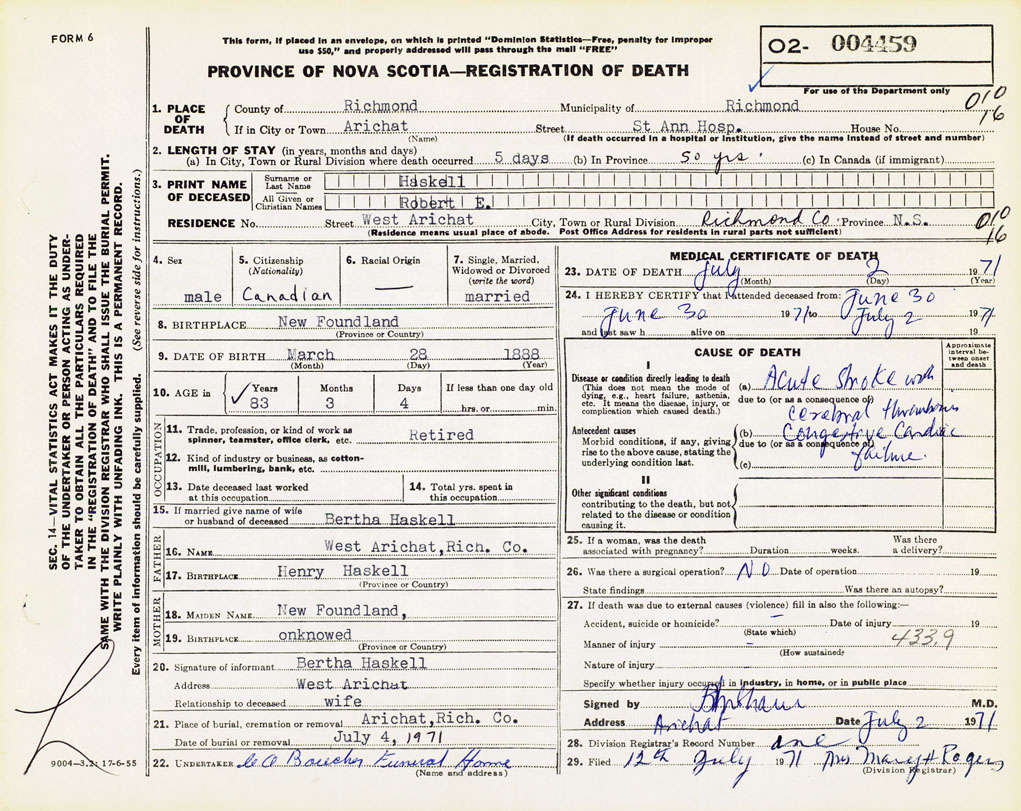 FORM 6
This form, if placed in an envelope, on which is printed "Dominion Statistics—Free, penalty for improper
use $50," and properly addressed will pass through the mail "FREE"
PROVINCE OF NOVA SCOTIA—REGISTRATION OF DEATH
O2- 004459
For use of the Department only
010
16
SEC. 14—VITAL STATISTICS ACT MAKES IT THE DUTY
OF THE UNDERTAKER OR PERSON ACTING AS UNDER-
TAKER TO OBTAIN ALL THE PARTICULARS REQUIRED
IN THE "REGISTRATION OF DEATH" AND TO FILE THE
SAME WITH THE DIVISION REGISTRAR WHO SHALL ISSUE THE BURIAL PERMIT.
WRITE PLAINLY WITH UNFADING INK. THIS IS A PERMANENT RECORD.
Every item of information should be carefully supplied. (See reverse side for instructions.)
1. PLACE OF DEATH County of Richmond Municipality of Richmond
If in City or Town Arichat Street St Ann Hosp. House No.
(Name) (If death occurred in a hospital or institution, give the name instead of street and number)
2. LENGTH OF STAY (in years, months and days)
(a) In City, Town or Rural Division where death occurred 5 days (b) In Province 50 yrs. (c) In Canada (if immigrant)
3. PRINT NAME OF DECEASED Surname or Last Name Haskell
All Given or Christian Names Robert E.
RESIDENCE No. Street West Arichat City, Town or Rural Division Richmond Co Province N.S.
(Residence means usual place of abode. Post Office Address for residents in rural parts not sufficient)
010
16
4. Sex male
5. Citizenship (Nationality) Canadian
6. Racial Origin —
7. Single, Married, Widowed or Divorced (write the word) married
8. BIRTHPLACE New Foundland
(Province or Country)
9. DATE OF BIRTH March 28 1888
(Month) (Day) (Year)
10. AGE in Years 83 Months 3 Days 4 If less than one day old hrs. or min.
OCCUPATION
11. Trade, profession, or kind of work as spinner, teamster, office clerk, etc. Retired
12. Kind of industry or business, as cotton-mill, lumbering, bank, etc.
13. Date deceased last worked at this occupation
14. Total yrs. spent in this occupation
15. If married give name of wife or husband of deceased Bertha Haskell
FATHER
16. NAME West Arichat,Rich. Co.
17. BIRTHPLACE Henry Haskell
(Province or Country)
MOTHER
18. MAIDEN NAME New Foundland,
19. BIRTHPLACE onknowed
(Province or Country)
20. Signature of informant Bertha Haskell
Address West Arichat
Relationship to deceased wife
21. Place of burial, cremation or removal Arichat,Rich. Co.
Date of burial or removal July 4, 1971
22. UNDERTAKER Boucher Funeral Home
(Name and address)
9004—3.2: 17-6-55
MEDICAL CERTIFICATE OF DEATH
23. DATE OF DEATH July 2 1971
(Month) (Day) (Year)
24. I HEREBY CERTIFY that I attended deceased from: June 30
June 30 1971 to July 2 1971
and last saw h alive on 19
CAUSE OF DEATH
Approximate interval between onset and death
I
Disease or condition directly leading to death
(This does not mean the mode of dying, e.g., heart failure, asthenia, etc. It means the disease, injury, or complication which caused death.)
(a) Acute stroke with
due to (or as a consequence of)
cerebral thrombosis
Antecedent causes
Morbid conditions, if any, giving rise to the above cause, stating the underlying condition last.
(b) Congestive Cardiac
due to (or as a consequence of)
failure.
(c)
II
Other significant conditions
contributing to the death, but not related to the disease or condition causing it.
25. If a woman, was the death associated with pregnancy? Duration weeks. Was there a delivery?
26. Was there a surgical operation? NO Date of operation 19
State findings Was there an autopsy?
27. If death was due to external causes (violence) fill in also the following:—
Accident, suicide or homicide? — Date of injury 19
(State which)
433.9
Manner of injury —
(How sustained)
Nature of injury
Specify whether injury occurred in industry, in home, or in public place
Signed by M.D.
Address Arichat Date July 2 1971
28. Division Registrar's Record Number one
29. Filed 12th July 1971 Mrs Mary H Rogers
(Division Registrar)